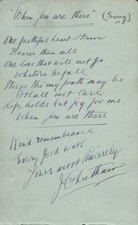 "When you are there" (Song)
One faithful heart I know
Dearer than all
One love that will not go
Whate'er befall
What tho' my path may be
I shall not care
Life holds but joy for me
When you are there
Kind remembrance
Every good wish
Yours most sincerely